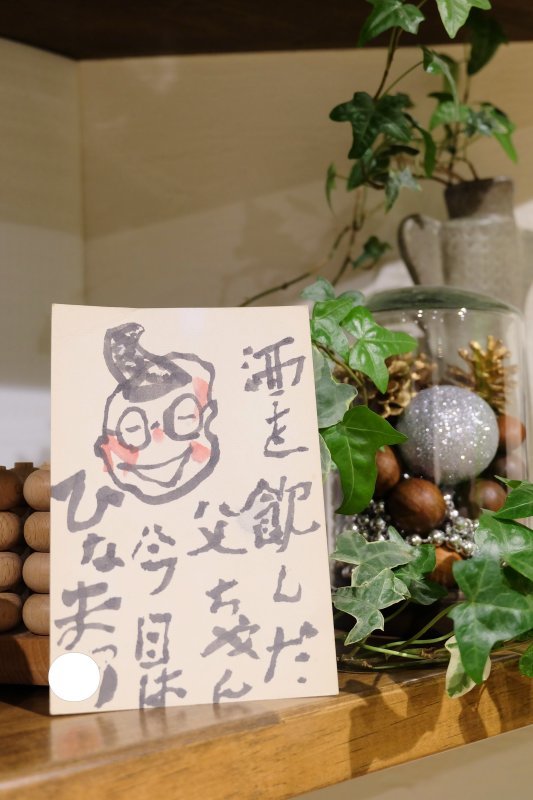 酒を飲んだ
父ちゃん
今日は
ひなまつり